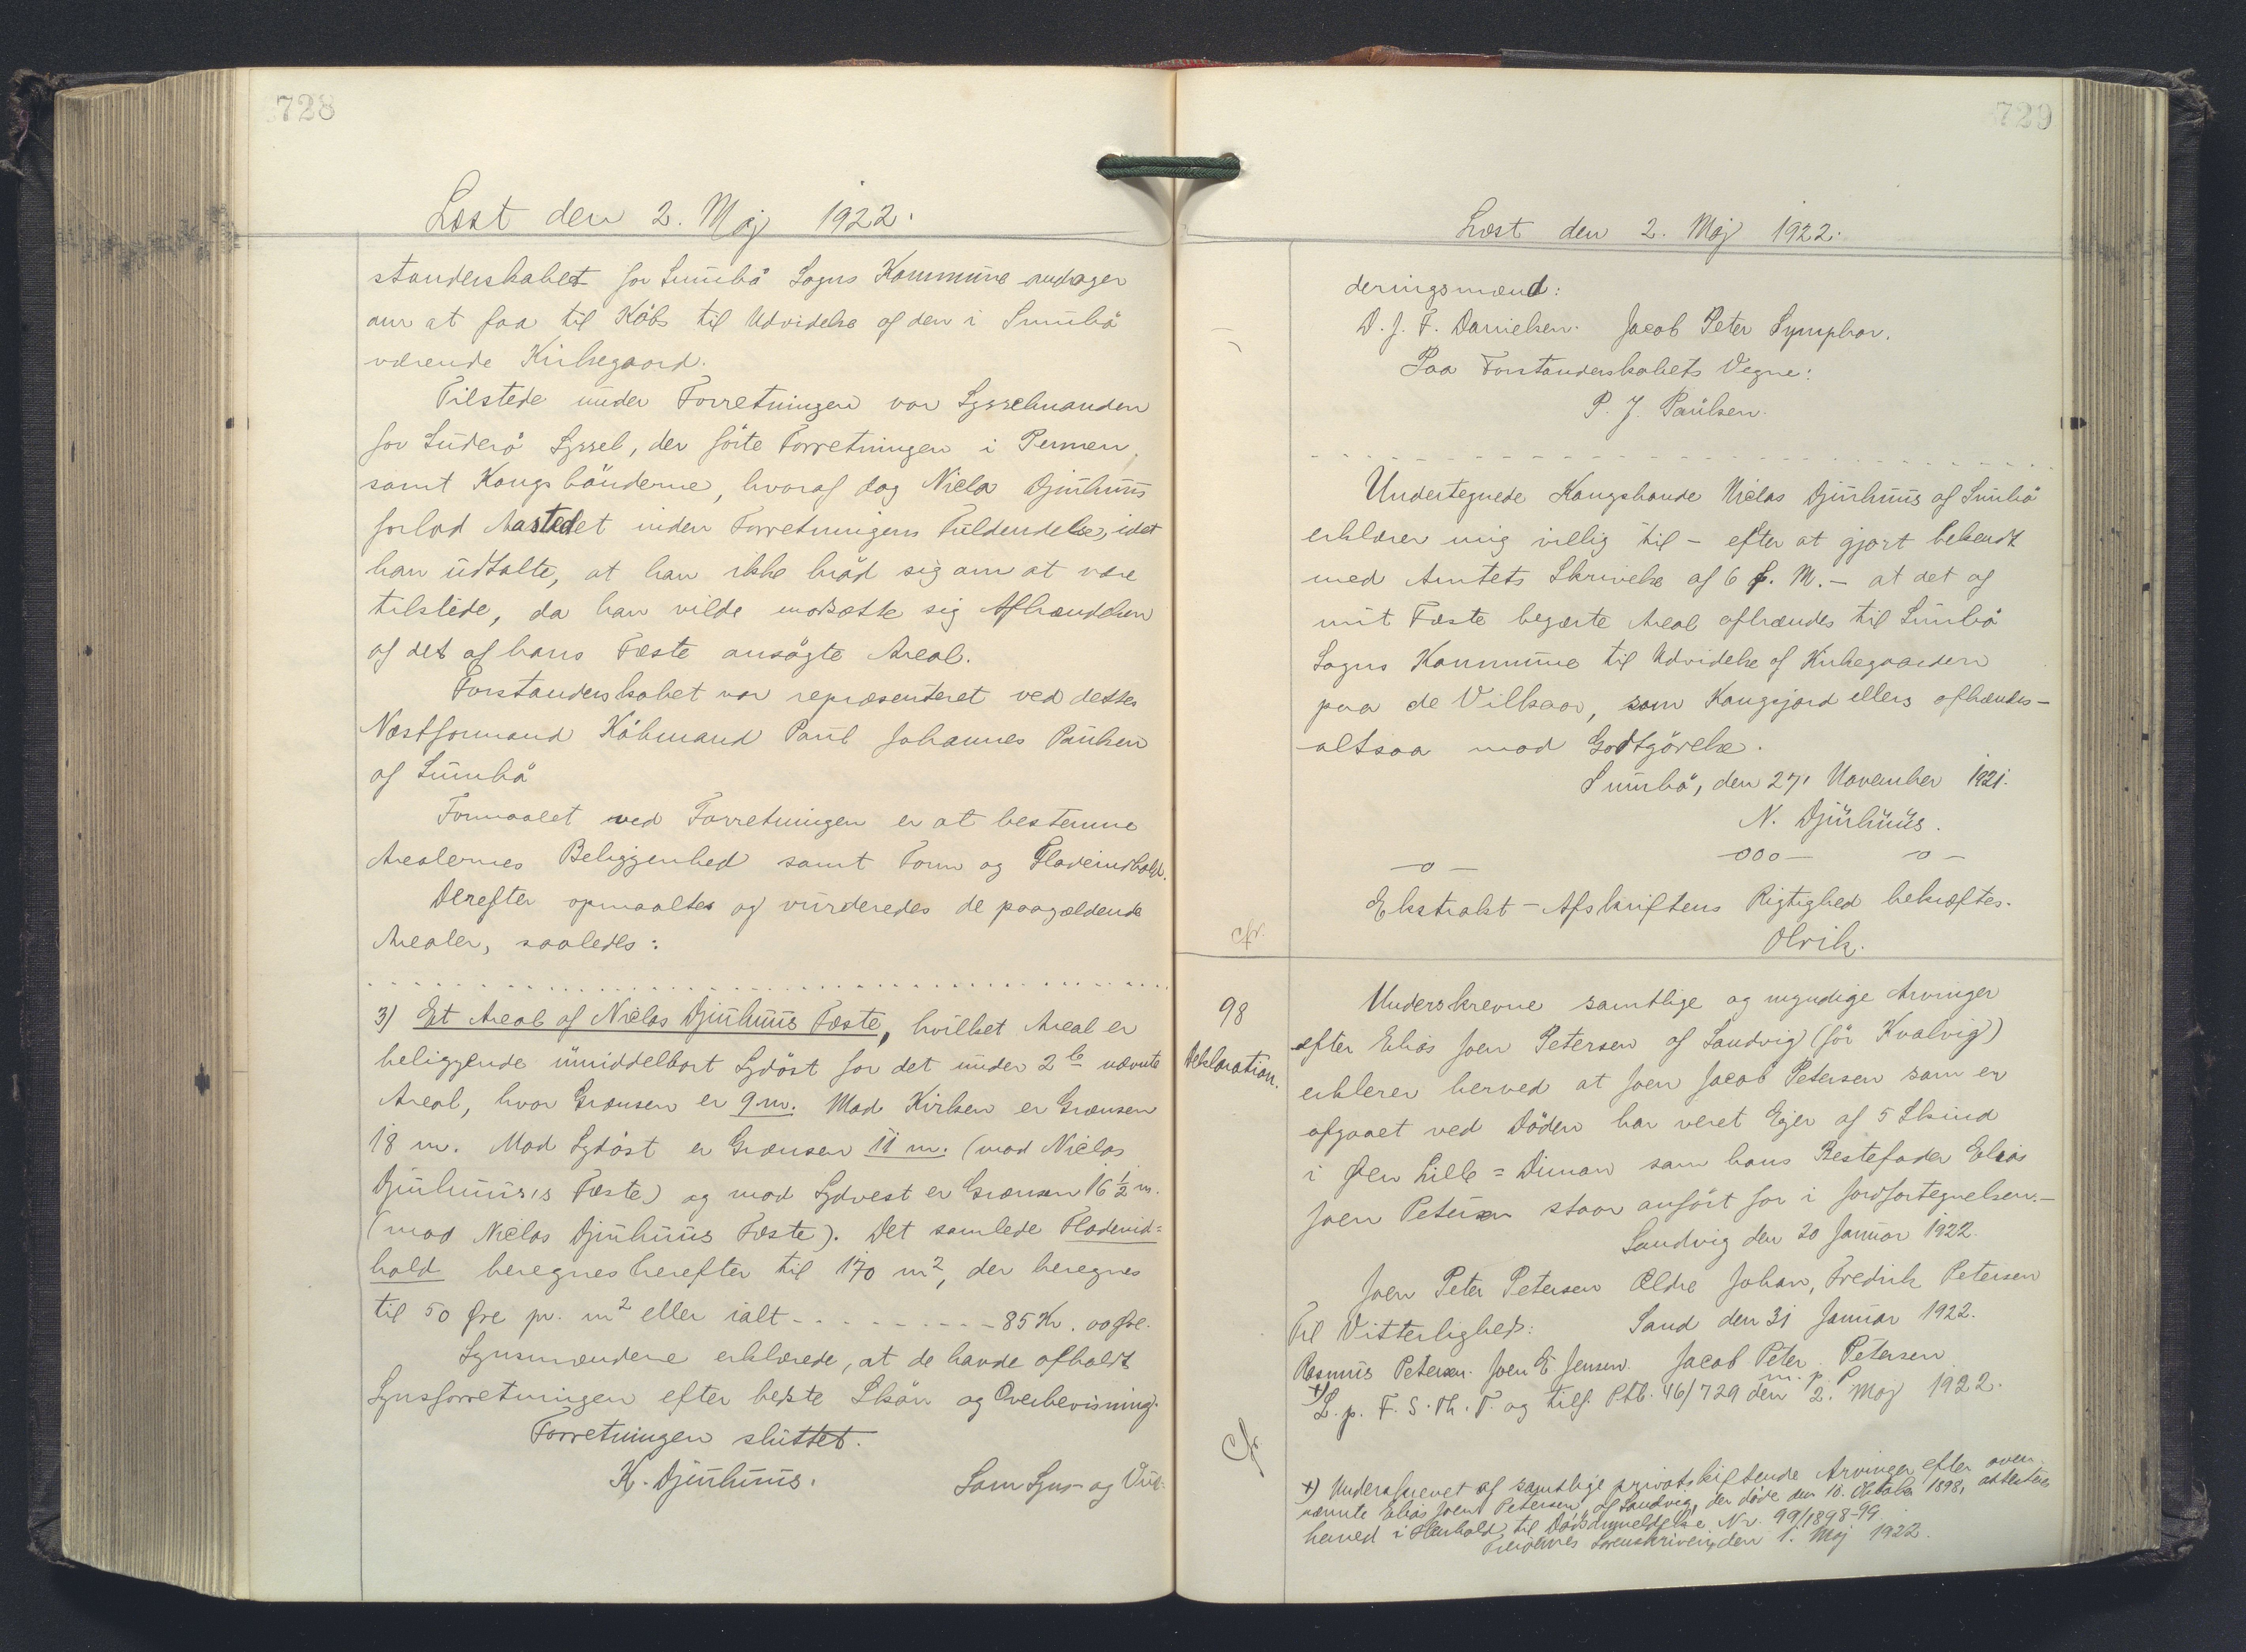 728
Læst den 2. Maj 1922.
standerskabet for Sumbø Sogns Kommune andrager
om at faa til Købs til Udvidelse af den i Sumbø
værende Kirkegaard.
Tilstede under Forretningen var Sysselmanden
for Suderø Syssel, der førte Forretningen i Pennen,
samt Kongsbønderne, hvoraf dog Niclas Djurhuus
forlod Aastedet inden Forretningens Fuldendelse, idet
han udtalte, at han ikke brød sig om at være
tilstede, da han vilde modsætte sig Afhændelsen
af det af hans Fæste ansøgte Areal.
Forstanderskabet var repræsenteret ved dettes
Næstformand Købmand Paul Johannes Paulsen
af Sumbø
Formaalet ved Forretningen er at bestemme
Arealernes Beliggenhed samt Form og Fladeindhold.
Derefter opmaaltes og vurderedes de paagældende
Arealer, saaledes:
3) Et Areal af Niclas Djurhuus Fæste, hvilket Areal er
beliggende umiddelbart Sydøst for det under 2<sup>b</sup> nævnte
Areal, hvor Grænsen er 9 m. Mod Kirken er Grænsen
18 m. Mod Sydøst er Grænsen 11 m. (mod Niclas
Djurhuus's Fæste) og mod Sydvest er Grænsen 16 ½ m.
(mod Niclas Djurhuus Fæste). Det samlede Fladeind=
hold beregnes herefter til 170 m², der beregnes
til 50 Øre pr. m² eller ialt - - - - - - - - - 85 Kr. 00 Øre.
Synsmændene erklærede, at de havde afholdt
Synsforretningen efter bedste Skøn og Overbevisning.
Forretningen sluttet.
K. Djurhuus. Som Syns- og Vur-
729
Læst den 2. Maj 1922.
deringsmænd:
D. J. F. Danielsen. Jacob Peter Symphor.
Paa Forstanderskabets Vegne:
P. J. Paulsen.
Undertegnede Kongsbonde Niclas Djurhuus af Sumbø
erklærer mig villig til - efter at gjort bekendt
med Amtets Skrivelse af 6 f. M. - at det af
mit Fæste begærte Areal afhændes til Sumbø
Sogns Kommune til Udvidelse af Kirkegaarden
paa de Vilkaar, som Kongsjord ellers afhændes -
altsaa mod Godtgørelse.
Sumbø, den 27. November 1921.
N. Djurhuus.
-o- -ooo- -o-
Ekstrakt-Afskriftens Rigtighed bekræftes.
cfr. Olrik.
98
Deklaration.
Underskrevne samtlige og myndige Arvinger
efter Elias Joen Petersen af Sandvig (før Kvalvig)
erklerer herved at Joen Jacob Petersen som er
afgaaet ved Døden har veret Ejer af 5 Skind
i Øen Lille=Dimon som hans Bestefader Elias
Joen Petersen staar anført for i Jordfortegnelsen.-
Sandvig den 20 Januar 1922.
Joen Peter Petersen Ældre Johan, Fredrik Petersen
Til Vitterlighed: Sand den 31 Januar 1922.
Rasmus Petersen. Joen E Jensen. Jacob Peter Petersen
m. p. P
+) L. p. F. S. Th. T. og tilf. Ptb. 46/729 den 2. Maj 1922.
Cfr.
+) Underskrevet af samtlige privatskiftende Arvinger efter oven-
nævnte Elias Joen Petersen, af Sandvig, der døde den 10. Oktober 1898, attesteres
herved i Henhold til Dødsanmeldelse Nr. 99/1898-99.
Færøernes Sorenskriveri, den 1. Maj 1922.